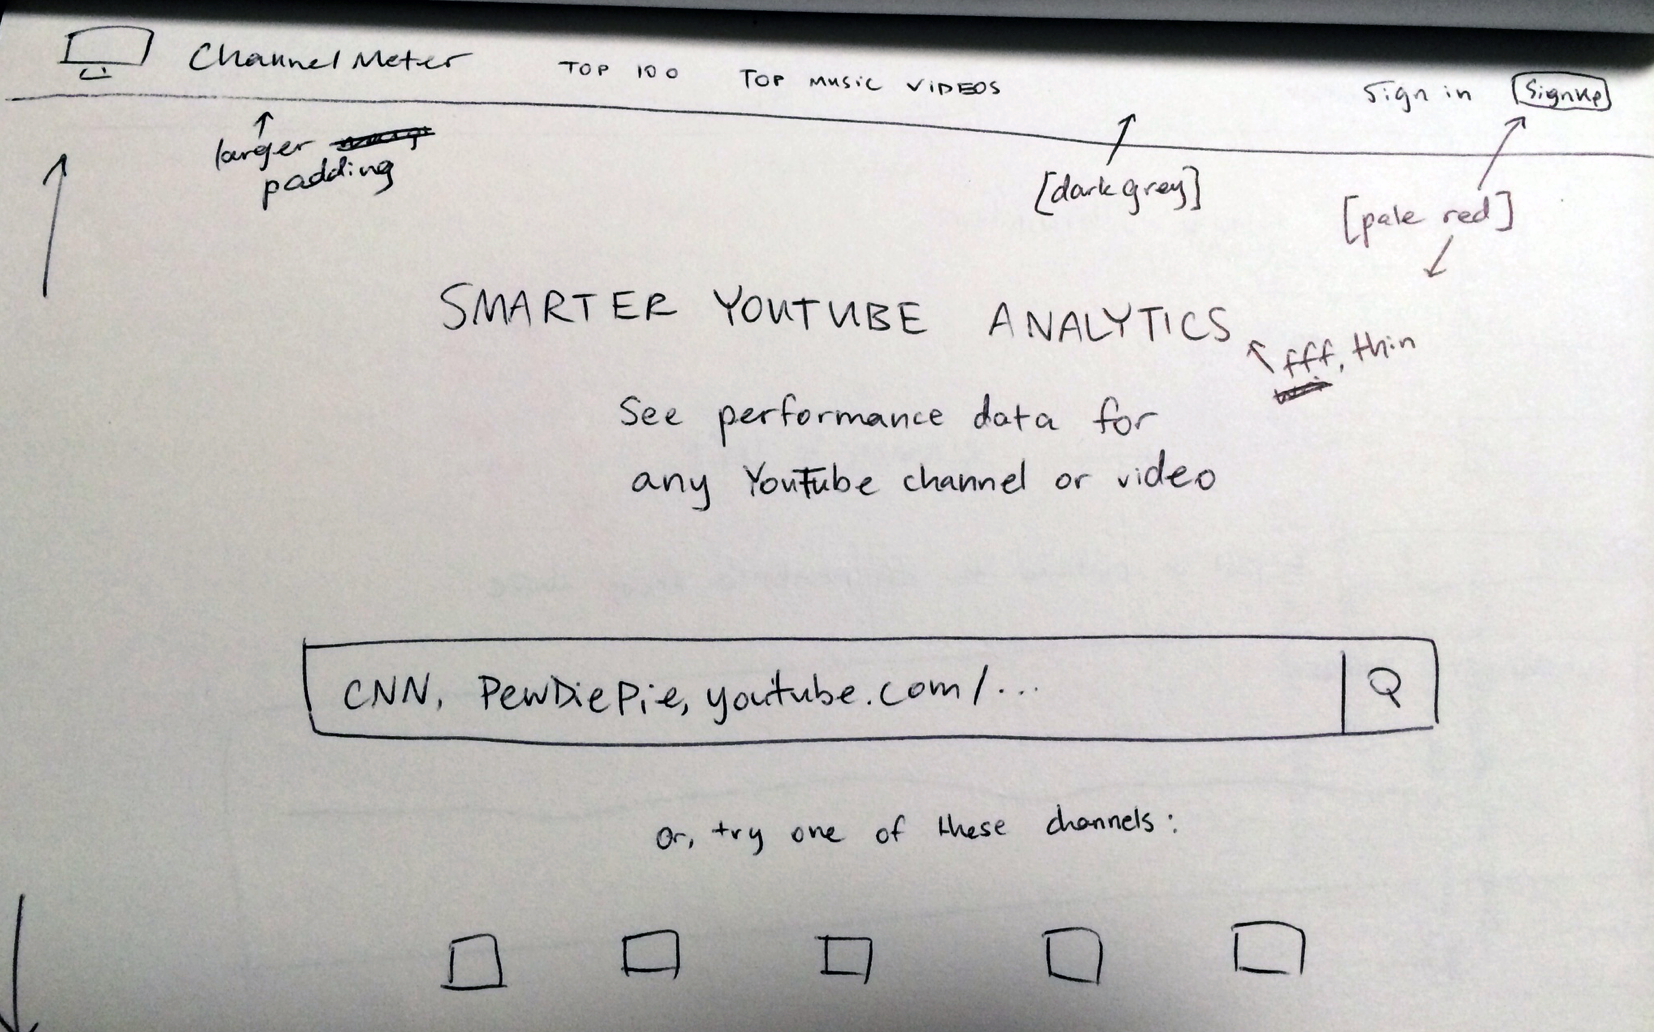 ChannelMeter TOP 100 TOP MUSIC VIDEOS Sign in Signup
larger
padding
[dark grey]
[pale red]
SMARTER YOUTUBE ANALYTICS
fff, thin
See performance data for
any YouTube channel or video
CNN, PewDiePie, youtube.com/...
or, try one of these channels: